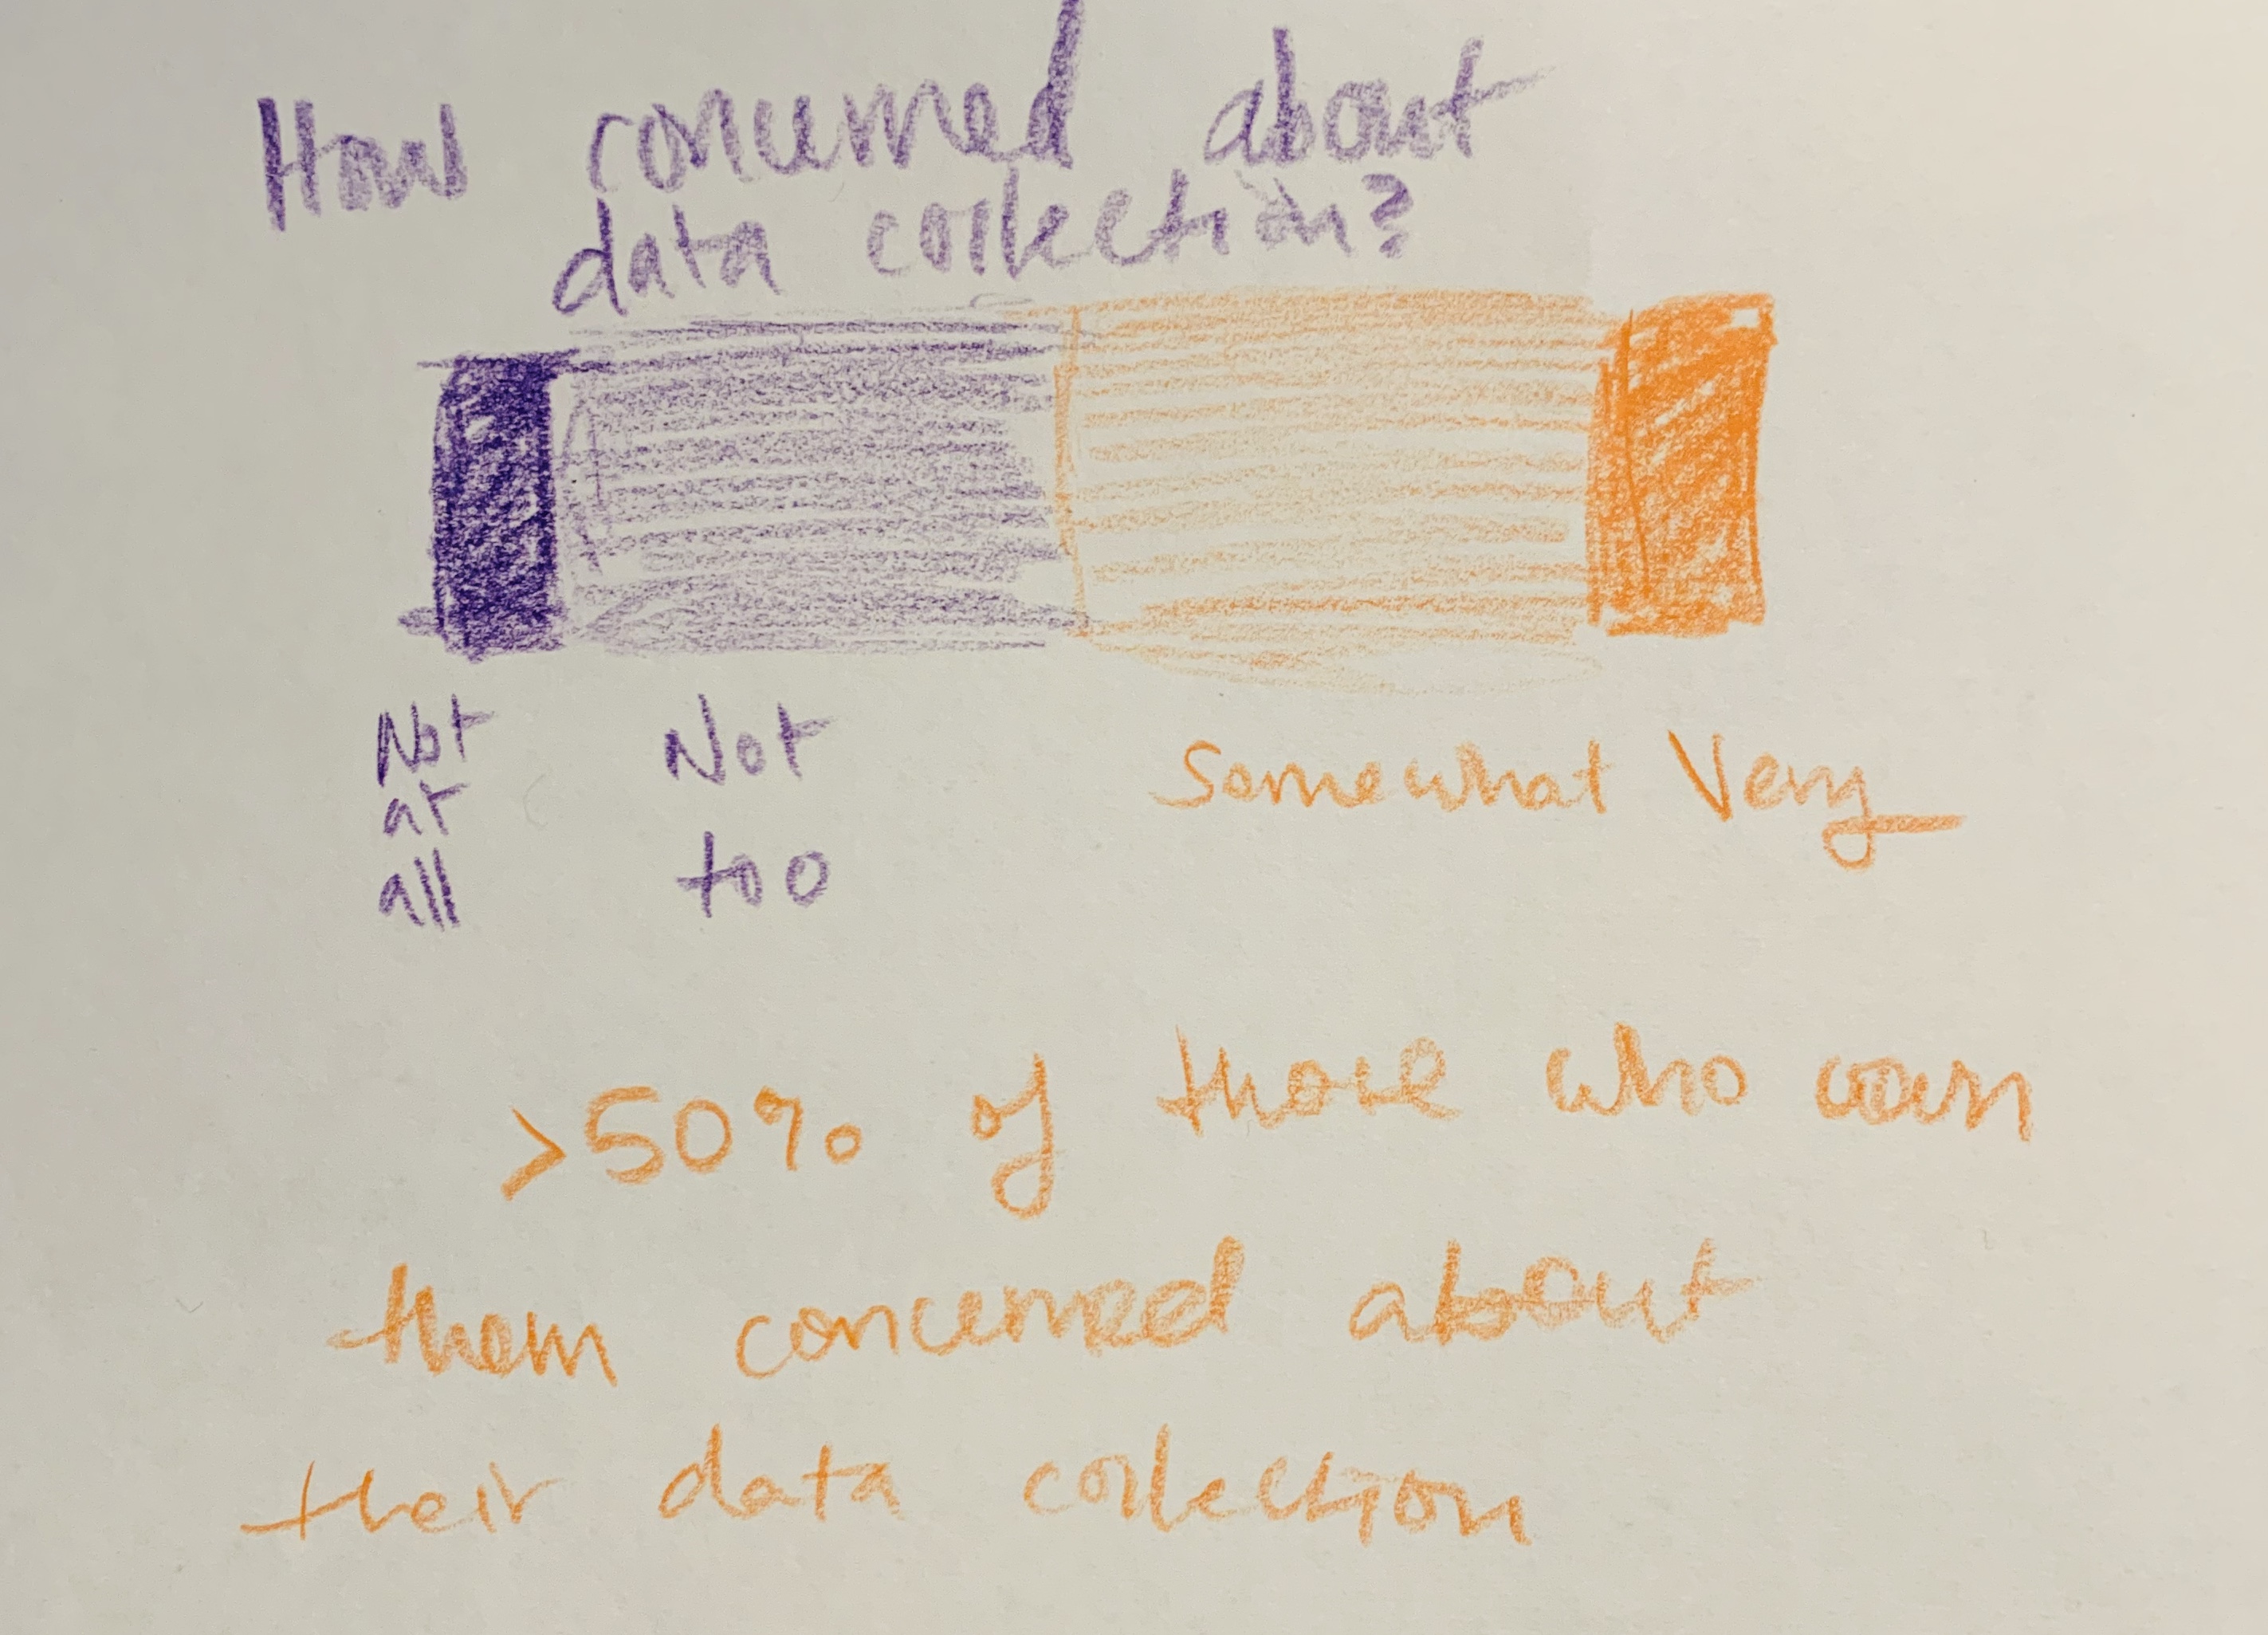 How concerned about
data collection?
Not at all
Not too
Somewhat
Very
>50% of those who own
them concerned about
their data collection